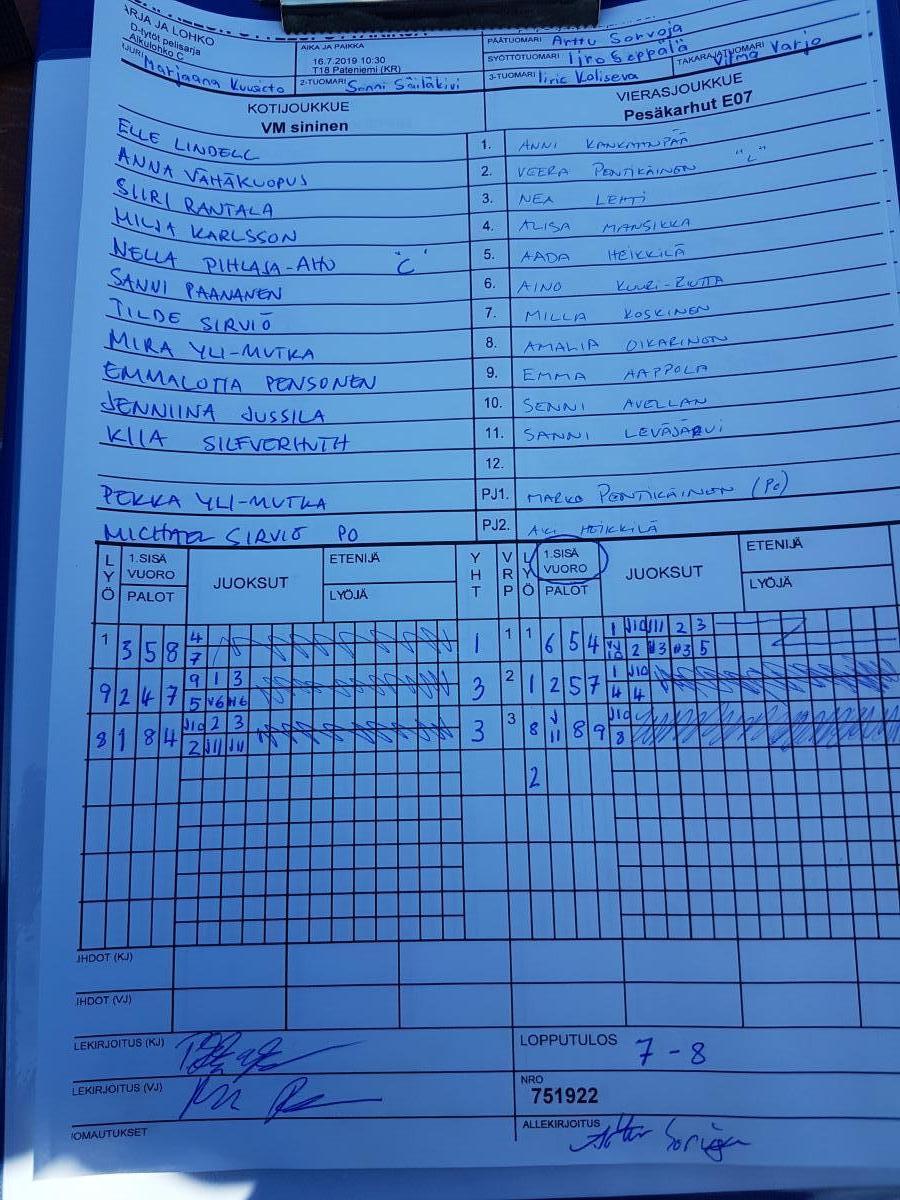 ARJA JA LOHKO
D-tytöt pelisarja
Alkulohko C
AIKA JA PAIKKA
16.7.2019 10:30
T18 Pateniemi (KR)
PÄÄTUOMARI Arttu Sorvoja
SYÖTTÖTUOMARI Iiro Seppälä
TAKARAJATUOMARI Vilma Varjo
JURI Marjaana Kuusisto
2-TUOMARI Sonni Säiläkivi
3-TUOMARI Iiric Koliseva
KOTIJOUKKUE
VM sininen
VIERASJOUKKUE
Pesäkarhut E07
ELLE LINDELL 1. ANNI KANKAANPÄÄ
ANNA VÄHÄKUOPUS 2. VEERA PENTIKÄINEN "C"
SIIRI RANTALA 3. NEA LEHTI
MILJA KARLSSON 4. ALISA MANSIKKA
NELLA PIHLAJA-AHO "C" 5. AADA HEIKKILÄ
SANNI PAANANEN 6. AINO KUURI-RIUTTA
TILDE SIRVIÖ 7. MILLA KOSKINEN
MIRA YLI-MUTKA 8. AMALIA OIKARINEN
EMMALOTTA PENSONEN 9. EMMA AAPPOLA
JENNIINA JUSSILA 10. SENNI AVELLAN
KIIA SILFVERHUTH 11. SANNI LEVÄJÄRVI
12.
PEKKA YLI-MUTKA PJ1. MARKO PENTIKÄINEN (PO)
MICHAEL SIRVIÖ PO PJ2. AKI HEIKKILÄ
LYÖ 1.SISÄ VUORO PALOT JUOKSUT ETENIJÄ LYÖJÄ YHT VRP LYÖ 1.SISÄ VUORO PALOT JUOKSUT ETENIJÄ LYÖJÄ
1 3 5 8 4 1 1 1 6 5 4 1 J10 J11 2 3
7 2 5
9 2 4 7 9 1 3 3 2 1 2 5 7 1 J10
5 V6 4 4
8 1 8 4 J10 2 3 3 3 8 J11 8 9 J10
2 J11 J11 8
2
IHDOT (KJ)
IHDOT (VJ)
LEKIRJOITUS (KJ)
LOPPUTULOS 7 - 8
LEKIRJOITUS (VJ)
NRO
751922
OMAUTUKSET
ALLEKIRJOITUS